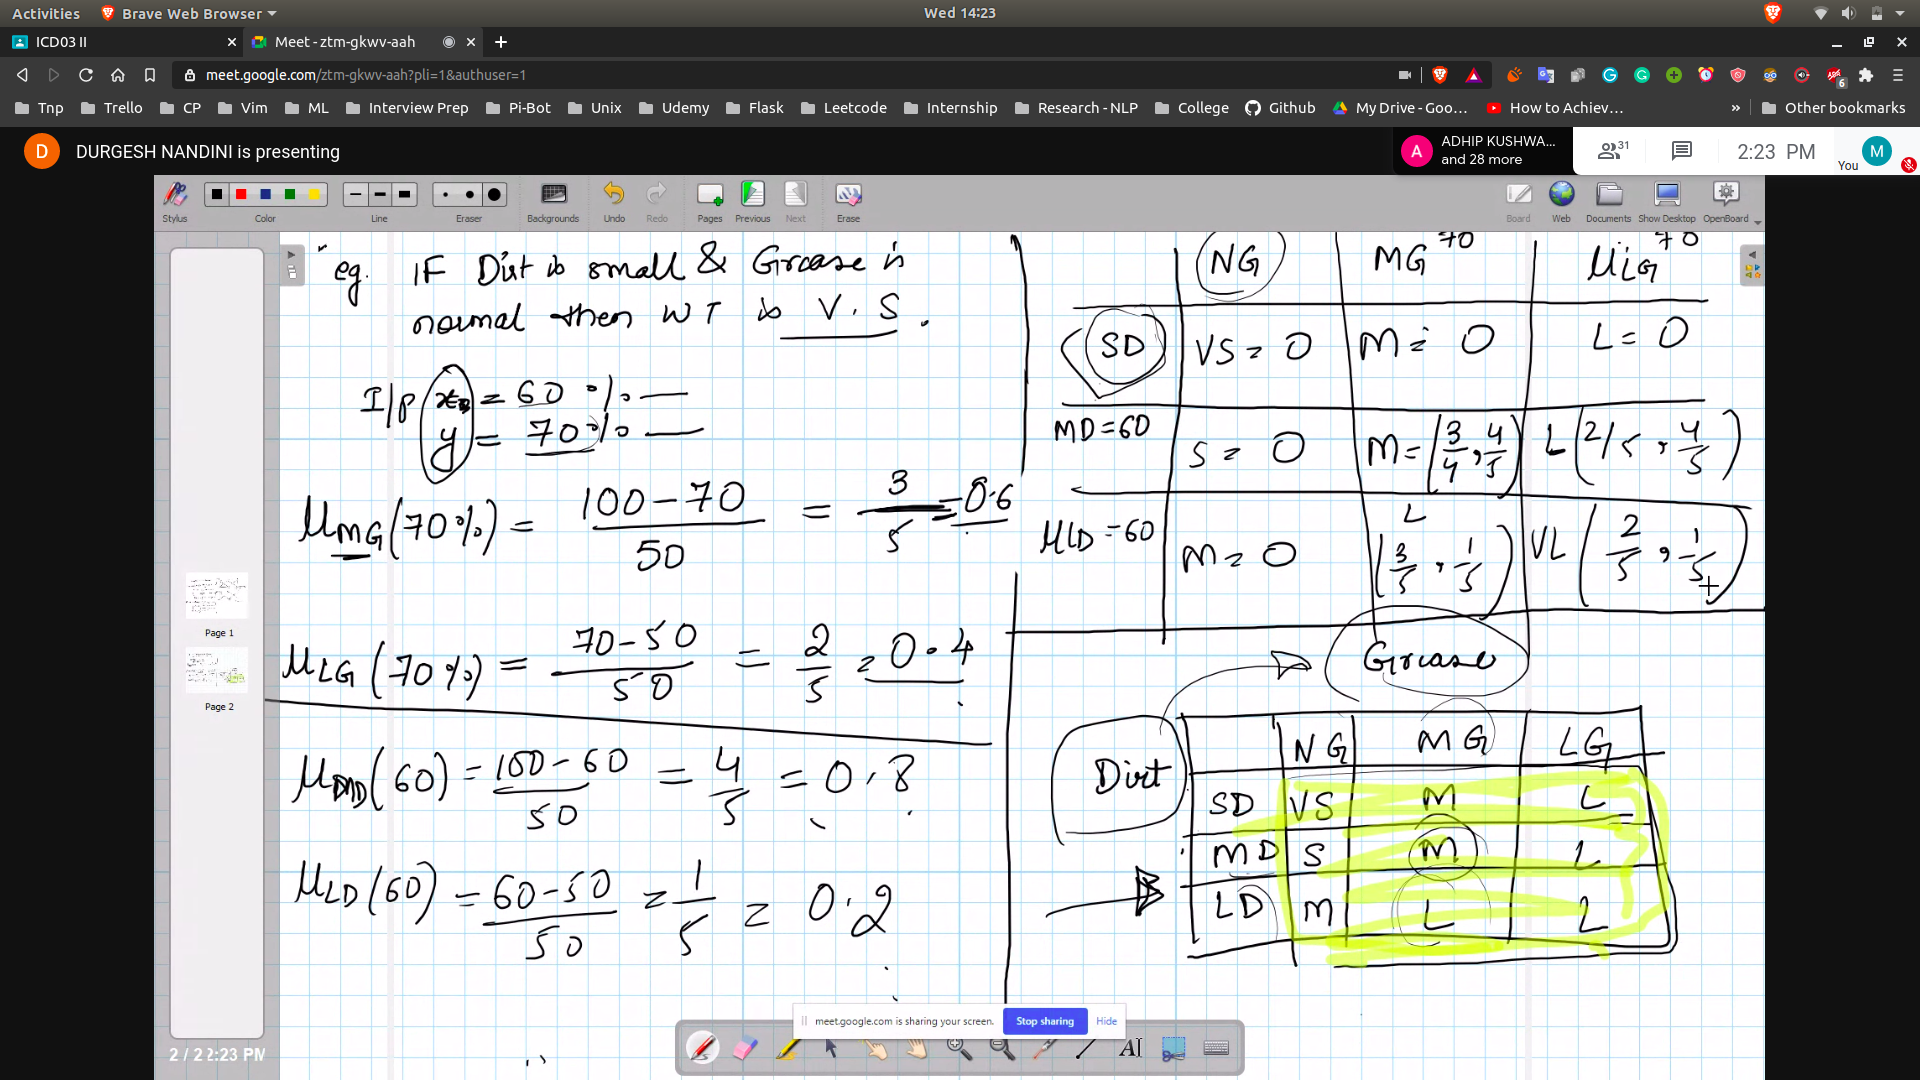 Activities Brave Web Browser Wed 14:23
ICD03 II Meet - ztm-gkwv-aah
meet.google.com/ztm-gkwv-aah?pli=1&authuser=1
Tnp Trello CP Vim ML Interview Prep Pi-Bot Unix Udemy Flask Leetcode Internship Research - NLP College Github My Drive - Goo... How to Achiev... » Other bookmarks
D DURGESH NANDINI is presenting
A ADHIP KUSHWA... and 28 more
31 2:23 PM You M
Stylus Color Line Eraser Backgrounds Undo Redo Pages Previous Next Erase Board Web Documents Show Desktop OpenBoard
Page 1
Page 2
2 / 2 2:23 PM
eg. IF Dirt is small & Grease is
normal then WT is V.S.
I/p x = 60 %
y = 70%
μMG(70%) = 100-70 / 50 = 3/5 = 0.6
μLG(70%) = 70-50 / 50 = 2/5 = 0.4
μMD(60) = 100-60 / 50 = 4/5 = 0.8
μLD(60) = 60-50 / 50 = 1/5 = 0.2
NG MG 70 μLG 70
SD VS = 0 M = 0 L = 0
MD=60 S = 0 M = (3/4, 4/5) L (2/5, 4/5)
μLD=60 M = 0 L (3/5, 1/5) VL (2/5, 1/5)
Grease
Dirt
NG MG LG
SD VS M L
MD S M L
LD M L L
meet.google.com is sharing your screen. Stop sharing Hide